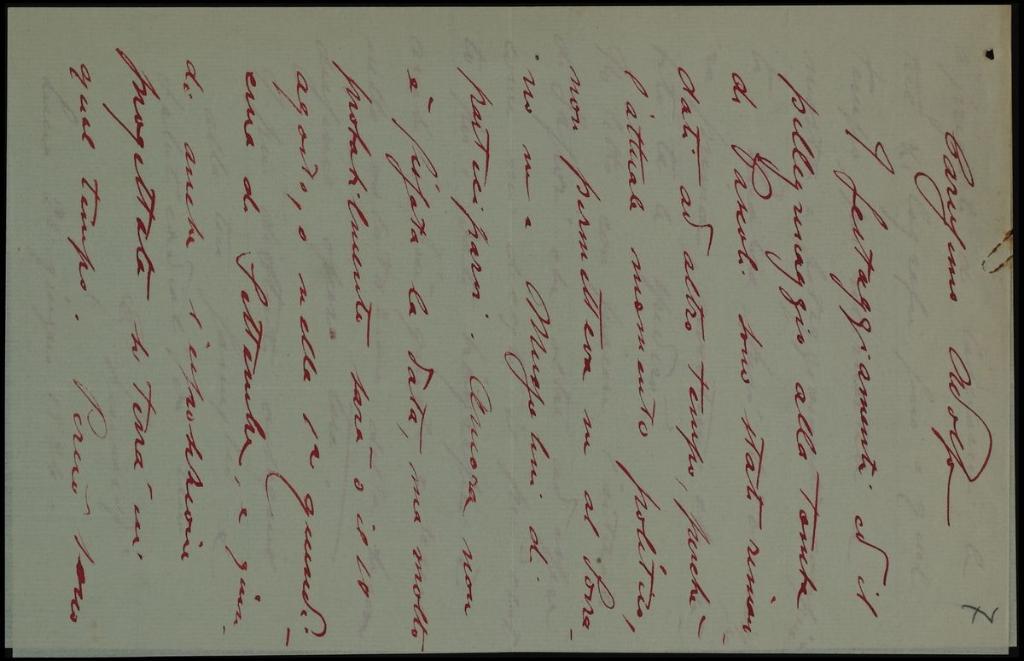 7
Carissimo Adolfo
I festeggiamenti ed il
pellegrinaggio alla Tomba
di Gaxoli sono stati riman-
dati ad altro tempo, perchè
l'attuale momento politico,
non permetteva nè al Sovra-
no nè a Mussolini di
parteciparvi. Ancora non
è fissata la data, ma molto
probabilmente sarà o il 10
agosto, o nella 1a quindi-
cina di Settembre, e quin-
di anche l'esposizione
progettata si terrà in
quel tempo. Perciò sono